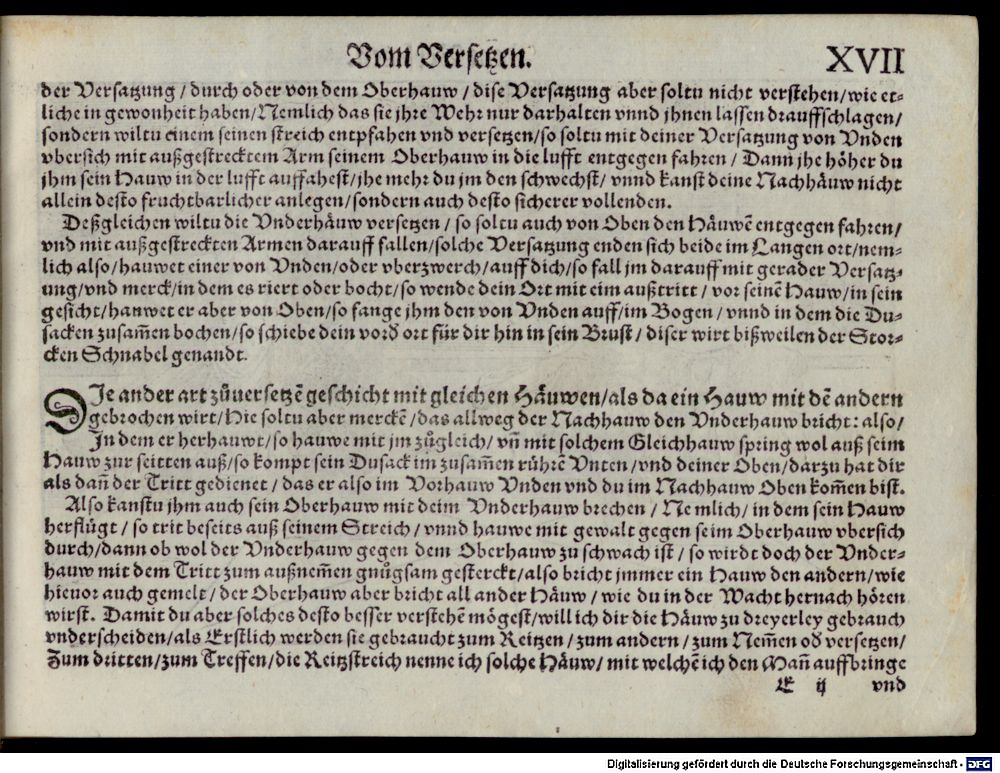 Vom Versetzen. XVII
der Versatzung / durch oder von dem Oberhauw / dise Versatzung aber soltu nicht verstehen / wie et-
liche in gewonheit haben / Nemlich das sie jhre Wehr nur darhalten vnnd jhnen lassen drauffschlagen /
sondern wiltu einem seinen streich entpfahen vnd versetzen / so soltu mit deiner Versatzung von Vnden
vbersich mit außgestrecktem Arm seinem Oberhauw in die lufft entgegen fahren / Dann jhe höher du
jhm sein Hauw in der lufft auffahest / jhe mehr du jm den schwechst / vnnd kanst deine Nachhäuw nicht
allein desto fruchtbarlicher anlegen / sondern auch desto sicherer vollenden.
Deßgleichen wiltu die Vnderhäuw versetzen / so soltu auch von Oben den Häuwē entgegen fahren /
vnd mit außgestreckten Armen darauff fallen / solche Versatzung enden sich beide im Langen ort / nem-
lich also / hauwet einer von Vnden / oder vberzwerch / auff dich / so fall jm darauff mit gerader Versatz-
ung / vnd merck / in dem es riert oder bocht / so wende dein Ort mit eim außtritt / vor seinē Hauw / in sein
gesicht / hanwet er aber von Oben / so fange jhm den von Vnden auff / im Bogen / vnnd in dem die Du-
sacken zusam̄en bochen / so schiebe dein vord̄ ort für dir hin in sein Brust / diser wirt bißweilen der Stor-
cken Schnabel genandt.
DIe ander art zůuersetzē geschicht mit gleichen Häuwen / als da ein Hauw mit dē andern
gebrochen wirt / Hie soltu aber merckē / das allweg der Nachhauw den Vnderhauw bricht: also /
In dem er herhauwt / so hauwe mit jm zůgleich / vn̄ mit solchem Gleichhauw spring wol auß seim
Hauw zur seitten auß / so kompt sein Dusack im zusam̄en rührē Vnten / vnd deiner Oben / darzu hat dir
als dan̄ der Tritt gedienet / das er also im Vorhauw Vnden vnd du im Nachhauw Oben kom̄en bist.
Also kanstu jhm auch sein Oberhauw mit deim Vnderhauw brechen / Nemlich / in dem sein Hauw
herflügt / so trit beseits auß seinem Streich / vnnd hauwe mit gewalt gegen seim Oberhauw vbersich
durch / dann ob wol der Vnderhauw gegen dem Oberhauw zu schwach ist / so wirdt doch der Vnder-
hauw mit dem Tritt zum außnem̄en gnůgsam gesterckt / also bricht jmmer ein Hauw den andern / wie
hieuor auch gemelt / der Oberhauw aber bricht all ander Häuw / wie du in der Wacht hernach hören
wirst. Damit du aber solches desto besser verstehē mögest / will ich dir die Häuw zu dreyerley gebrauch
vnderscheiden / als Erstlich werden sie gebraucht zum Reitzen / zum andern / zum Nem̄en od̄ versetzen /
Zum dritten / zum Treffen / die Reitzstreich nenne ich solche Häuw / mit welchē ich den Man̄ auffbringe
E ij vnd
Digitalisierung gefördert durch die Deutsche Forschungsgemeinschaft - DFG